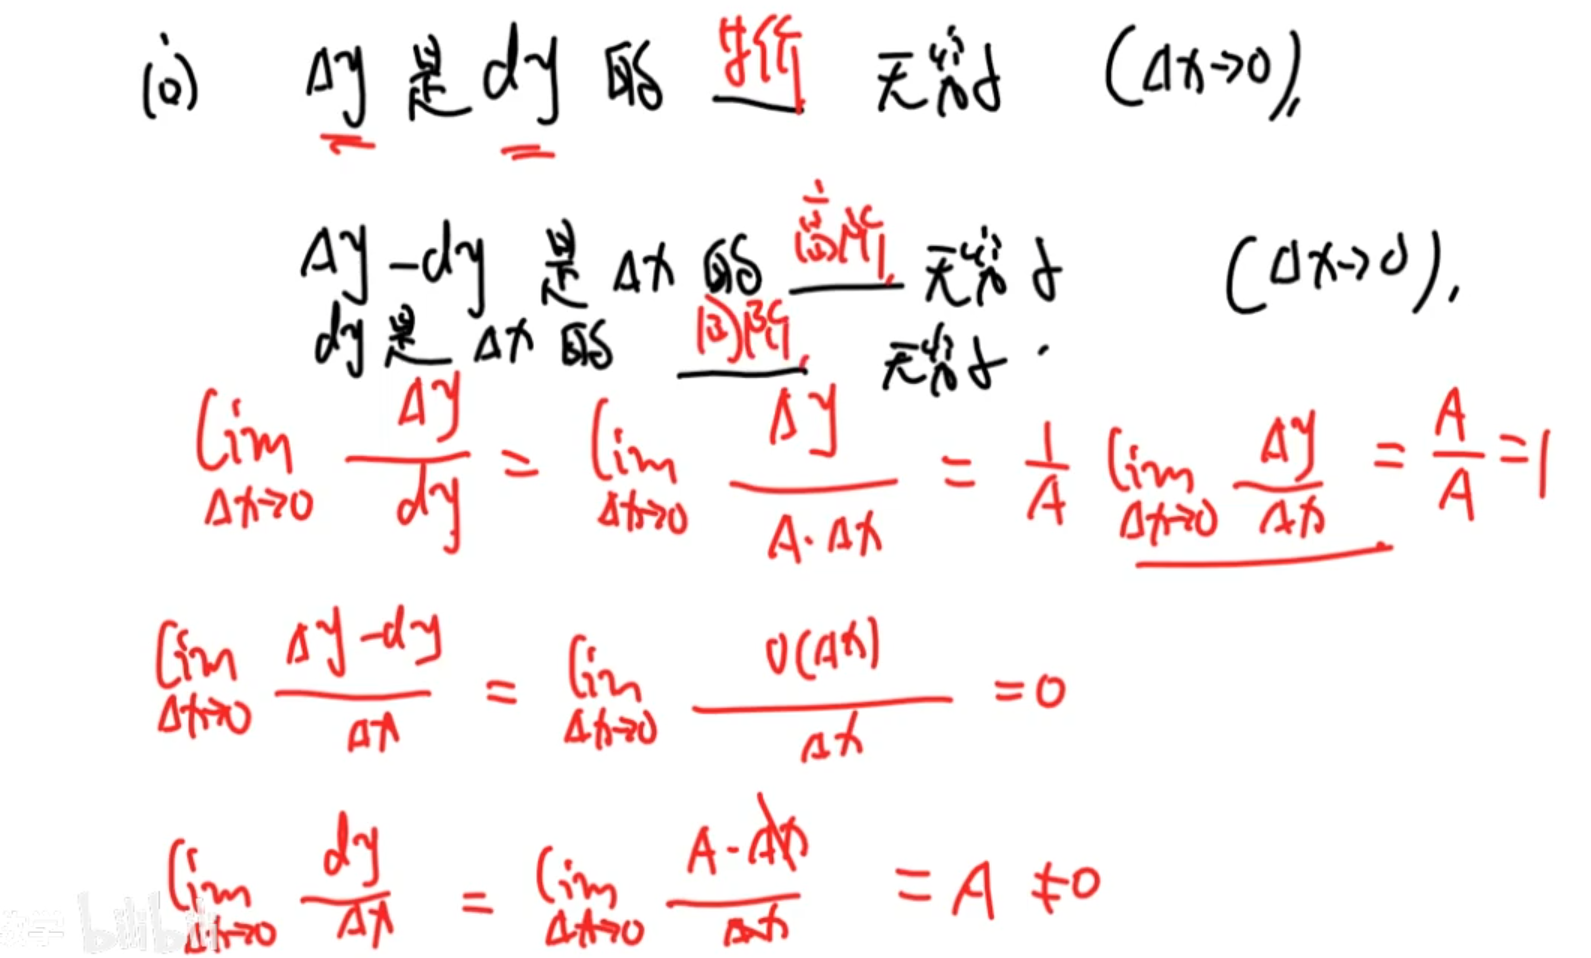 (i) Δy是dy的等价无穷小 (Δx→0),
Δy-dy是Δx的高阶无穷小 (Δx→0),
dy是Δx的同阶无穷小.
lim Δx→0 Δy/dy = lim Δx→0 Δy/(A·Δx) = 1/A lim Δx→0 Δy/Δx = A/A = 1
lim Δx→0 (Δy-dy)/Δx = lim Δx→0 o(Δx)/Δx = 0
lim Δx→0 dy/Δx = lim Δx→0 (A·Δx)/Δx = A ≠ 0
数学 bilibili